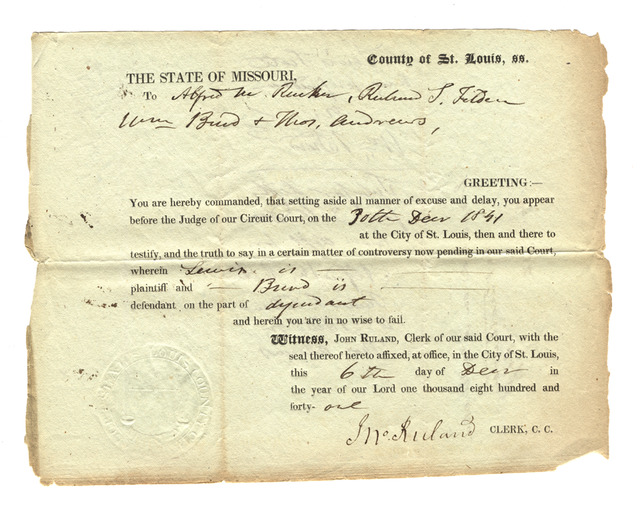 County of St. Louis, ss.
THE STATE OF MISSOURI,
To Alfred M. Rucker, Ruland S. Tilden
Wm Bird & Thos. Andrews,
GREETING:—
You are hereby commanded, that setting aside all manner of excuse and delay, you appear
before the Judge of our Circuit Court, on the 30th Decr 1841
at the City of St. Louis, then and there to
testify, and the truth to say in a certain matter of controversy now pending in our said Court,
wherein Lewis is —
plaintiff and — Bird is —
defendant on the part of defendant
and herein you are in no wise to fail.
Witness, JOHN RULAND, Clerk of our said Court, with the
seal thereof hereto affixed, at office, in the City of St. Louis,
this 6th day of Decr in
the year of our Lord one thousand eight hundred and
forty-one
Jno Ruland CLERK, C. C.